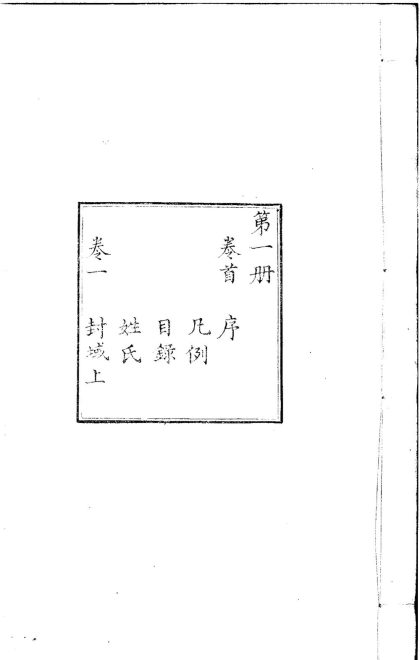 第一册
卷首 序
凡例
目錄
姓氏
卷一 封域上